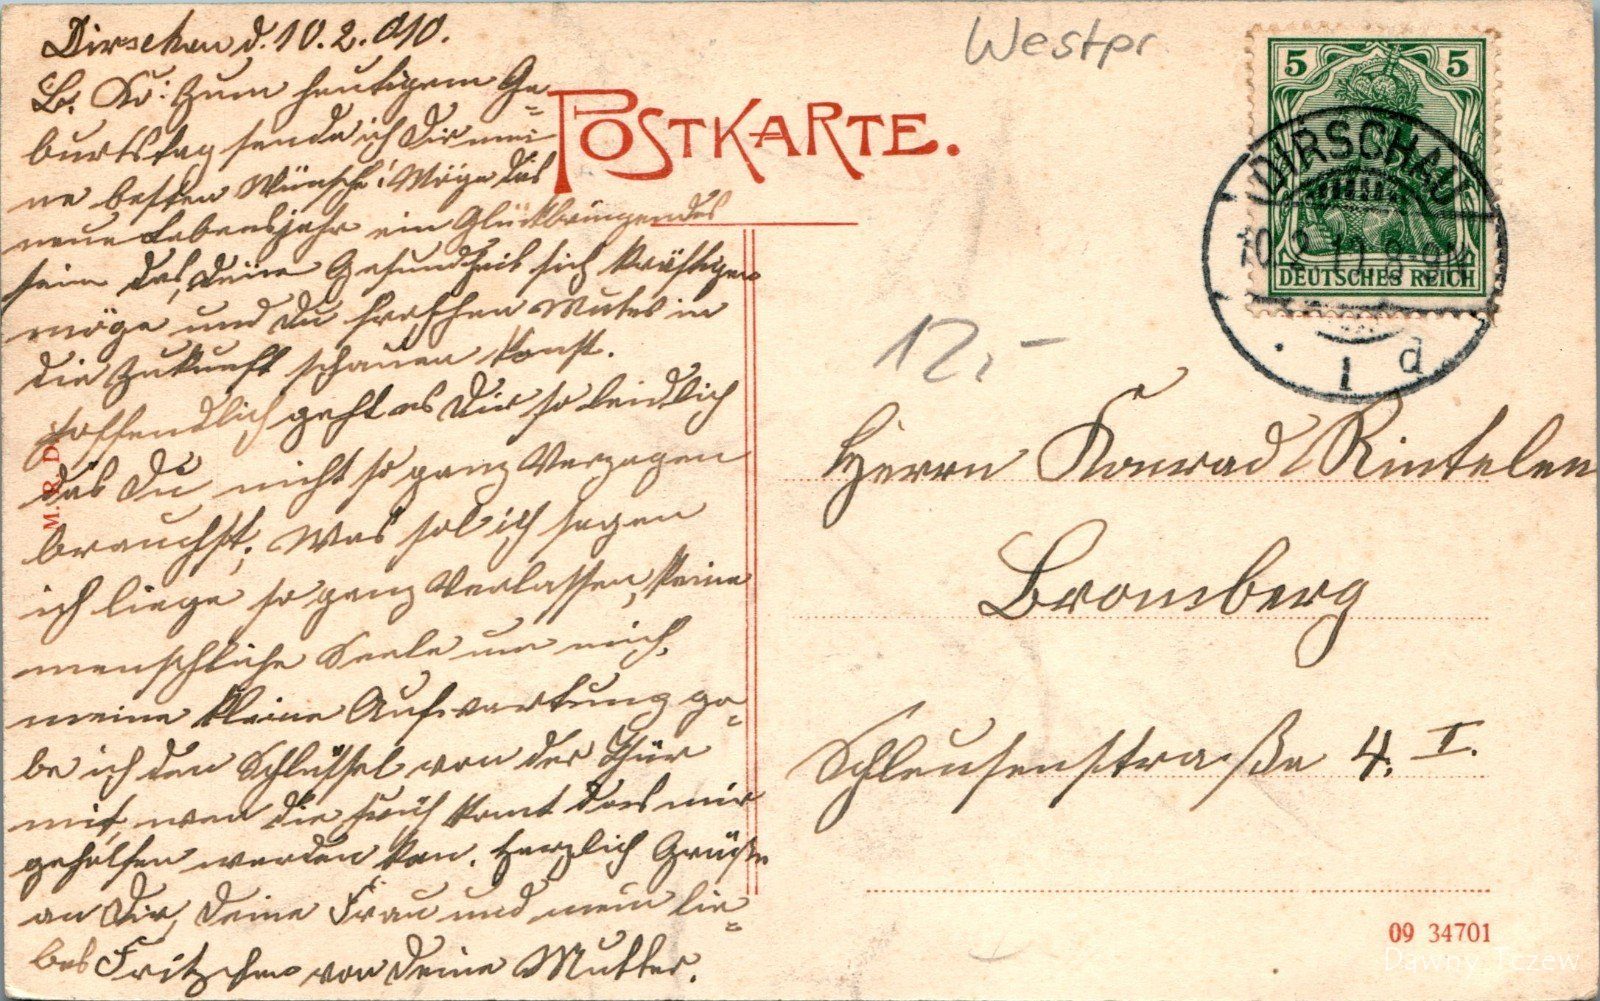 Dirschau d. 10.2.010.
L. Ko: Zum heutigem Ge=
burtstag sende ich Dir mei=
ne besten Wünsche! Möge das
neue Lebensjahr ein Glückbringendes
sein das, deine Gesundheit sich kräftigen
möge und Du frohen Mutes in
die Zukunft schauen konst.
hoffendlich geht es Dir so leidlich
das Du nicht so ganz Verzagen
brauchst. Was sol ich sagen
ich liege so ganz Verlassen, keine
menschliche Seele um mich,
meine kleine Aufwartung ga=
be ich den Schlüssel von der Thür
mit, wen die früh komt das mir
geholfen werden kan. Herzlich Grüße
an Dir, Deine Frau und mein lie=
bes Fritzchen von deine Mutter.
M. R. D.
Westpr
POSTKARTE.
5 5
DEUTSCHES REICH
DIRSCHAU
10.2.10.8-9N.
1 d
12,-
Herrn Konrad Rintelen
Bromberg
Schleusenstraße 4. I.
09 34701
Dawny Tczew